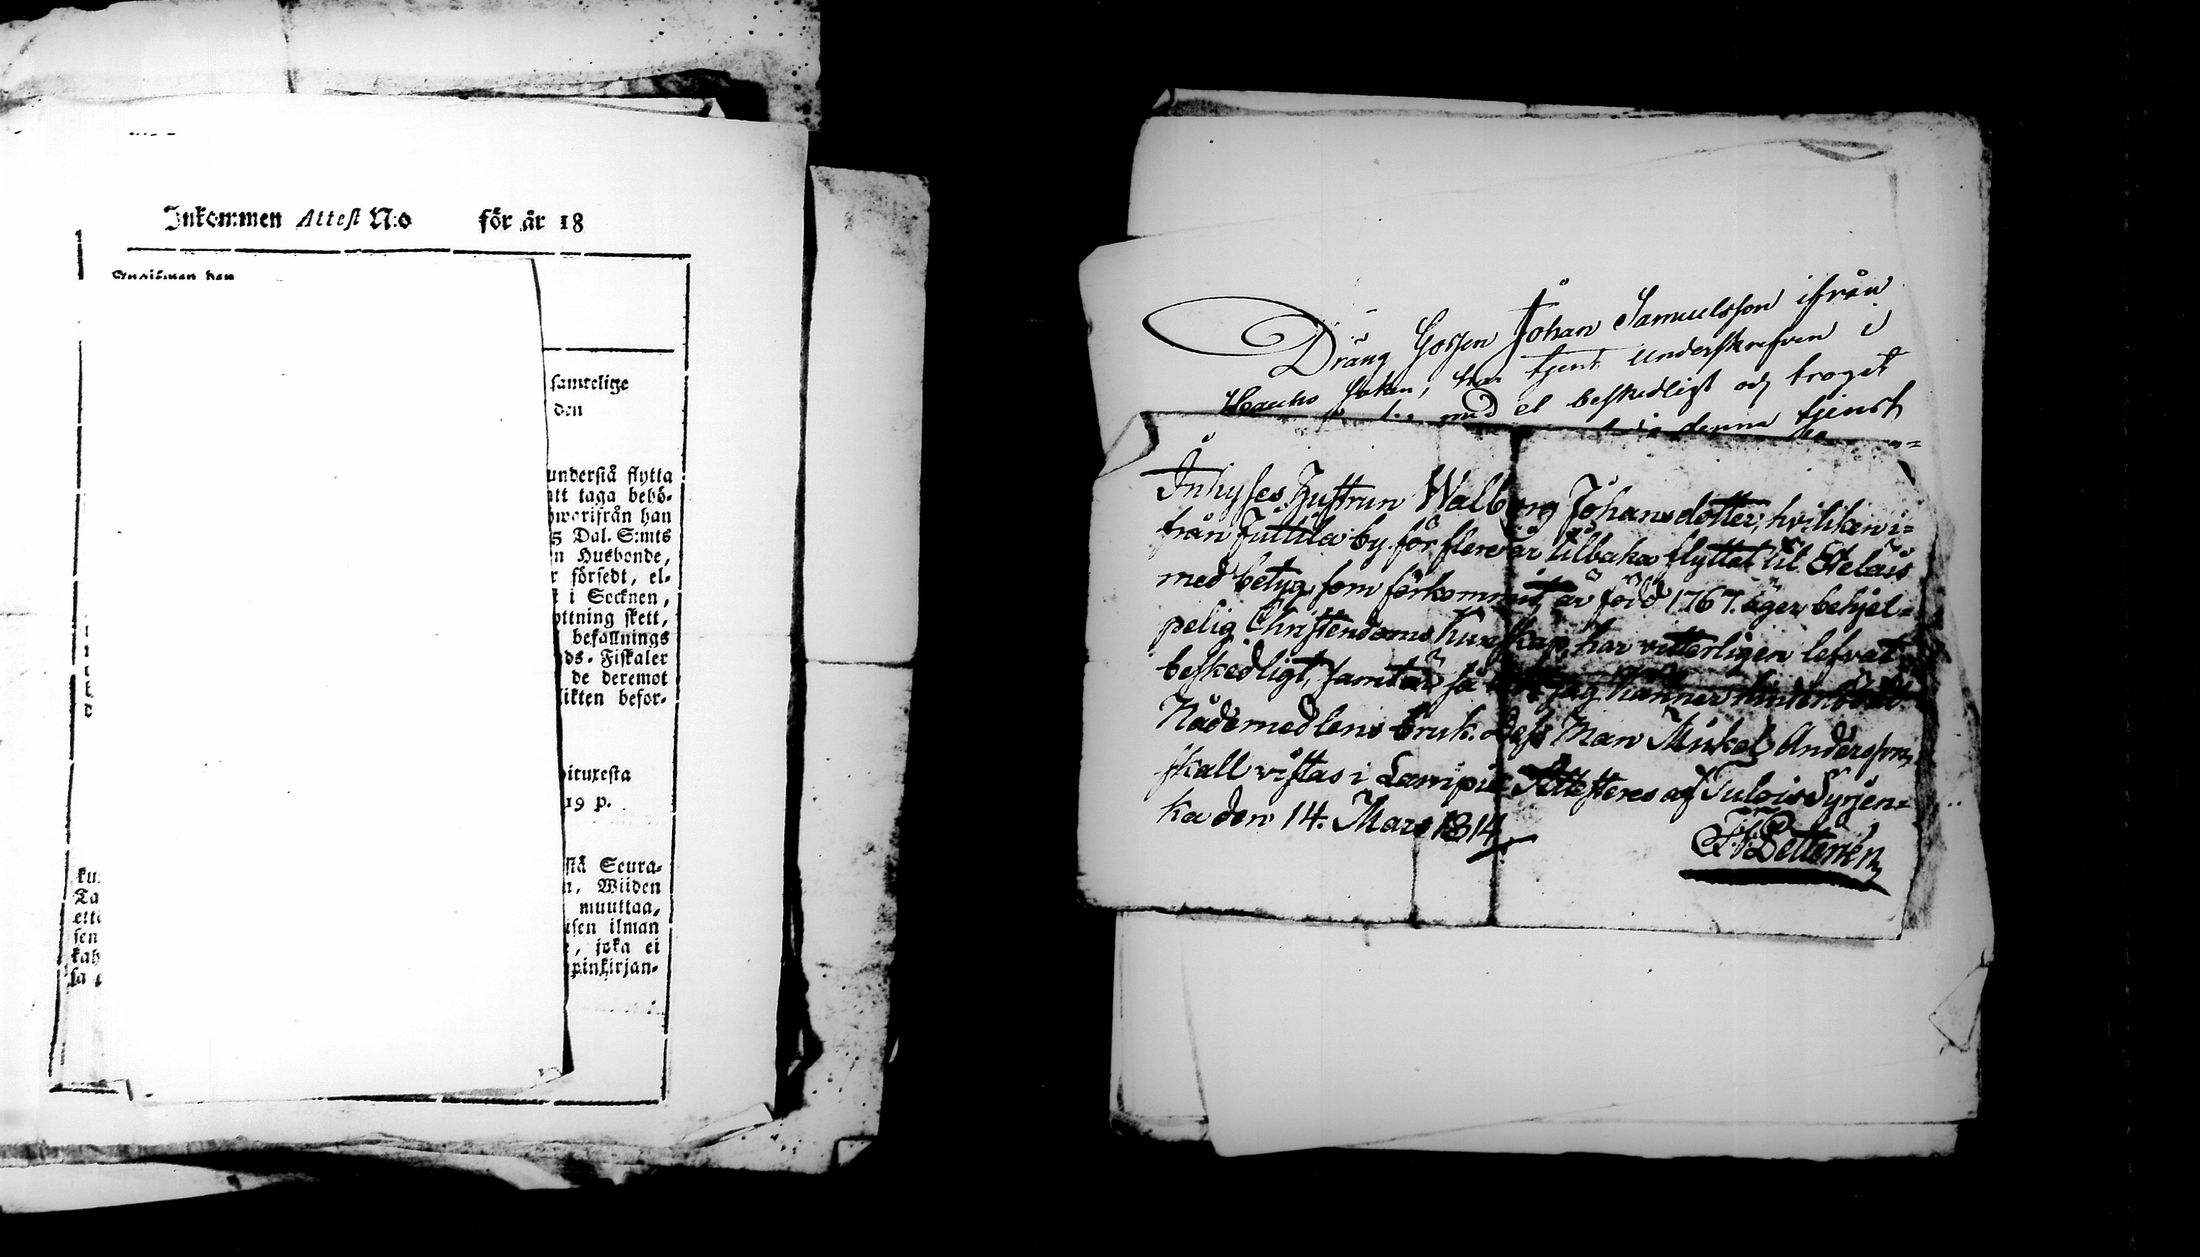 Inkommen Attest N:o för år 18
samtelige
den
understå flytta
att taga behö-
hworifrån han
5 Dal. S:mts
n Husbonde,
r försedt, el-
t i Socknen,
ottning skett,
befallnings
ds-Fiskaler
de deremot
likten befor-
19 p.
stä Seura-
n, Wiiden
muuttaa,
isen ilman
, joka ei
pinkirjan-
ku
Ta
ette
sen
kah
sa
Dräng Gossen Johan Samuelsson ifrån
Haucho Sokn, har tjent underskrefven i
med et beskedligt och troget
denna tjenst
Inhyses Hustrun Walborg Johansdotter, hvilken i-
från Juttila by för flere år tilbaka flyttat til Etelais
med betyg som förkommit, är född 1767. äger behjel-
pelig Christendoms kunskap, har vitterligen lefvat
beskedligt, samt är så vitt jag känner hindrlös til
Nådemedlens bruk. Dess Man Mickel Andersson
skall vistas i Lampis. Attesteres af Tulois Syrjen-
ka den 14. Mars 1814